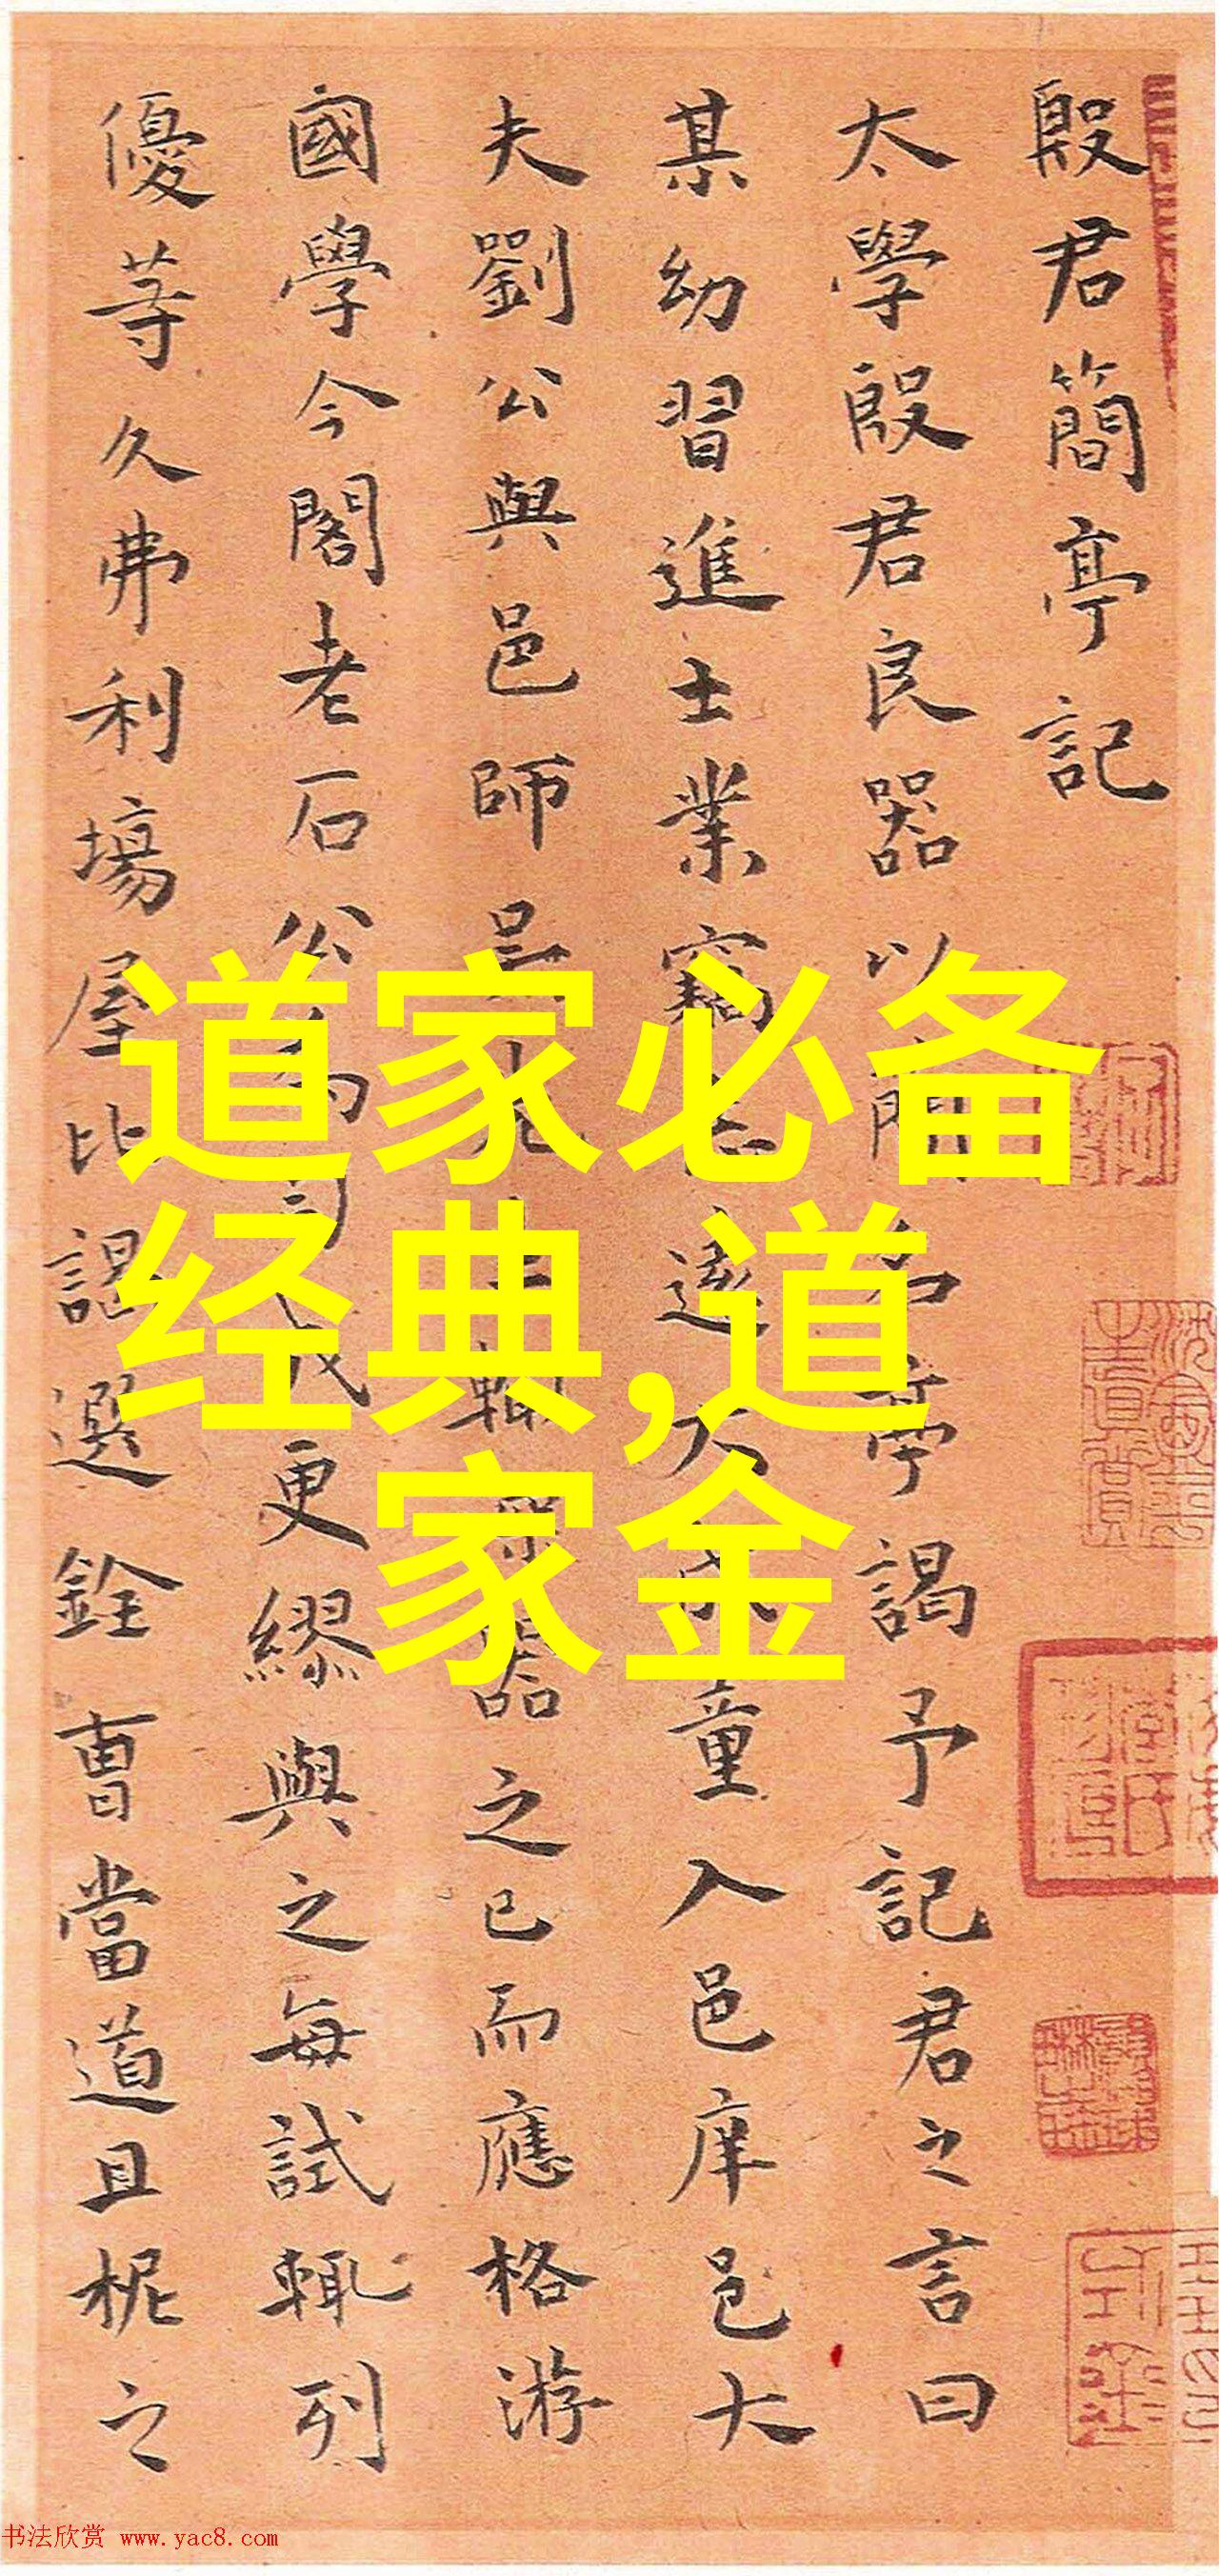 殷君簡亭記
太學殷君良器以簡名亭謁予記君之言曰
某幼習進士業竊志遠大成童入邑庠邑大
夫劉公與邑師吳先生輒器之已而應格游
國學今閣老石公為司成更繆與之每試輒列
優等久弗利場屋比謁選銓曹當道且柅之
道家必备
经典,道
家金
书法欣赏 www.yac8.com